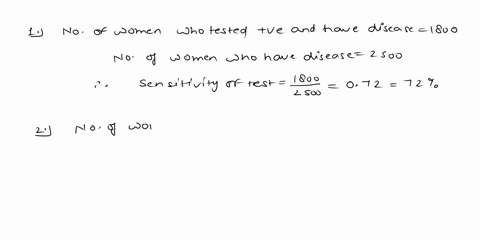 1.) No. of women who tested +ve and have disease = 1800
No. of women who have disease = 2500
∴ Sensitivity of test = 1800/2500 = 0.72 = 72%
2.) No. of wo